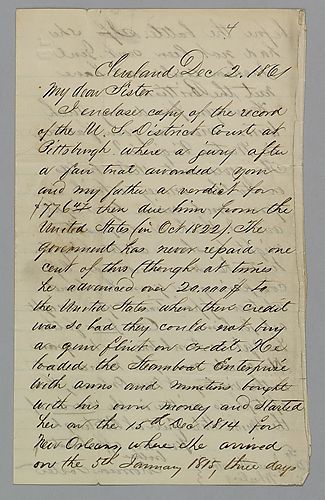 Cleveland Dec 2. 1861
My dear Sister
I enclose copy of the record
of the U. S District Court at
Pittsburgh where a jury after
a fair trial awarded your
and my father a verdict for
$776 42 then due him from the
United States (in Oct 1822). The
government has never repaid one
cent of this (though at times
he advanced over 20,000$ to
the United States when their credit
was so bad they could not buy
a gun flint on credit. He
loaded the Steamboat Enterprise
with arms and munitions bought
with his own money and started
her on the 15th Dec 1814 for
New Orleans, where she arrived
on the 5th January 1815, three days